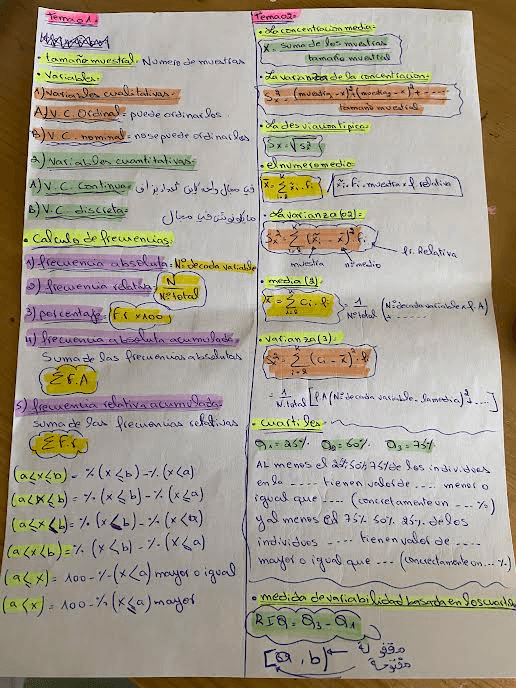 Tema 01:
• tamaño muestral: Numero de muestras
• Variables:
1) Variables cualitativas:
A) V.C. Ordinal = puede ordinarlos
B) V.C. nominal = no se puede ordinarlos
2) Variables cuantitativas:
A) V.C. Continua =
B) V.C. discreta =
• Calculo de frecuencias:
1) frecuencia absoluta: Nº de cada variable
2) frecuencia relativa: N / Nº total
3) porcentaje: F.r x 100
4) frecuencia absoluta acumulada:
Suma de las frecuencias absolutas
∑ F.A
5) frecuencia relativa acumulada:
suma de las frecuencias relativas
∑ F.r
(a≤x≤b) = % (x≤b) - % (x<a)
100 - % (x<a) mayor o igual
(a<x) = 100 - % (x≤a) mayor
Tema 02:
• La concentracion media:
x̄ = suma de las muestras / tamaño muestral
• La varianza de la concentracion:
tamaño muestral
• La desviacion tipica:
Sx = √Sx²
• el numero medio:
muestra x f. relativa
• La varianza (02):
fr. Relativa
muestra nº medio
• media (3):
x̄ = ∑ ci · fi = 1 / Nº total (Nº de cada variable x f. A)
• Varianza (3):
Sx² = ∑ (ci - x̄)² · fi
= 1 / N. total [f.A (Nº de cada variable - la media)² + ....]
• cuartiles:
Q1 = 25% Q2 = 50% Q3 = 75%
AL menos el 25% 50% 75% de los individuos
en la .... tienen valor de .... menor o
igual que .... (concretamente un ... %)
y al menos el 75% 50% 25% de los
individuos .... tienen valor de ....
mayor o igual que ... (concretamente un ... %)
• medida de variabilidad basada en los cuartiles
RIQ = Q3 - Q1
[a, b)